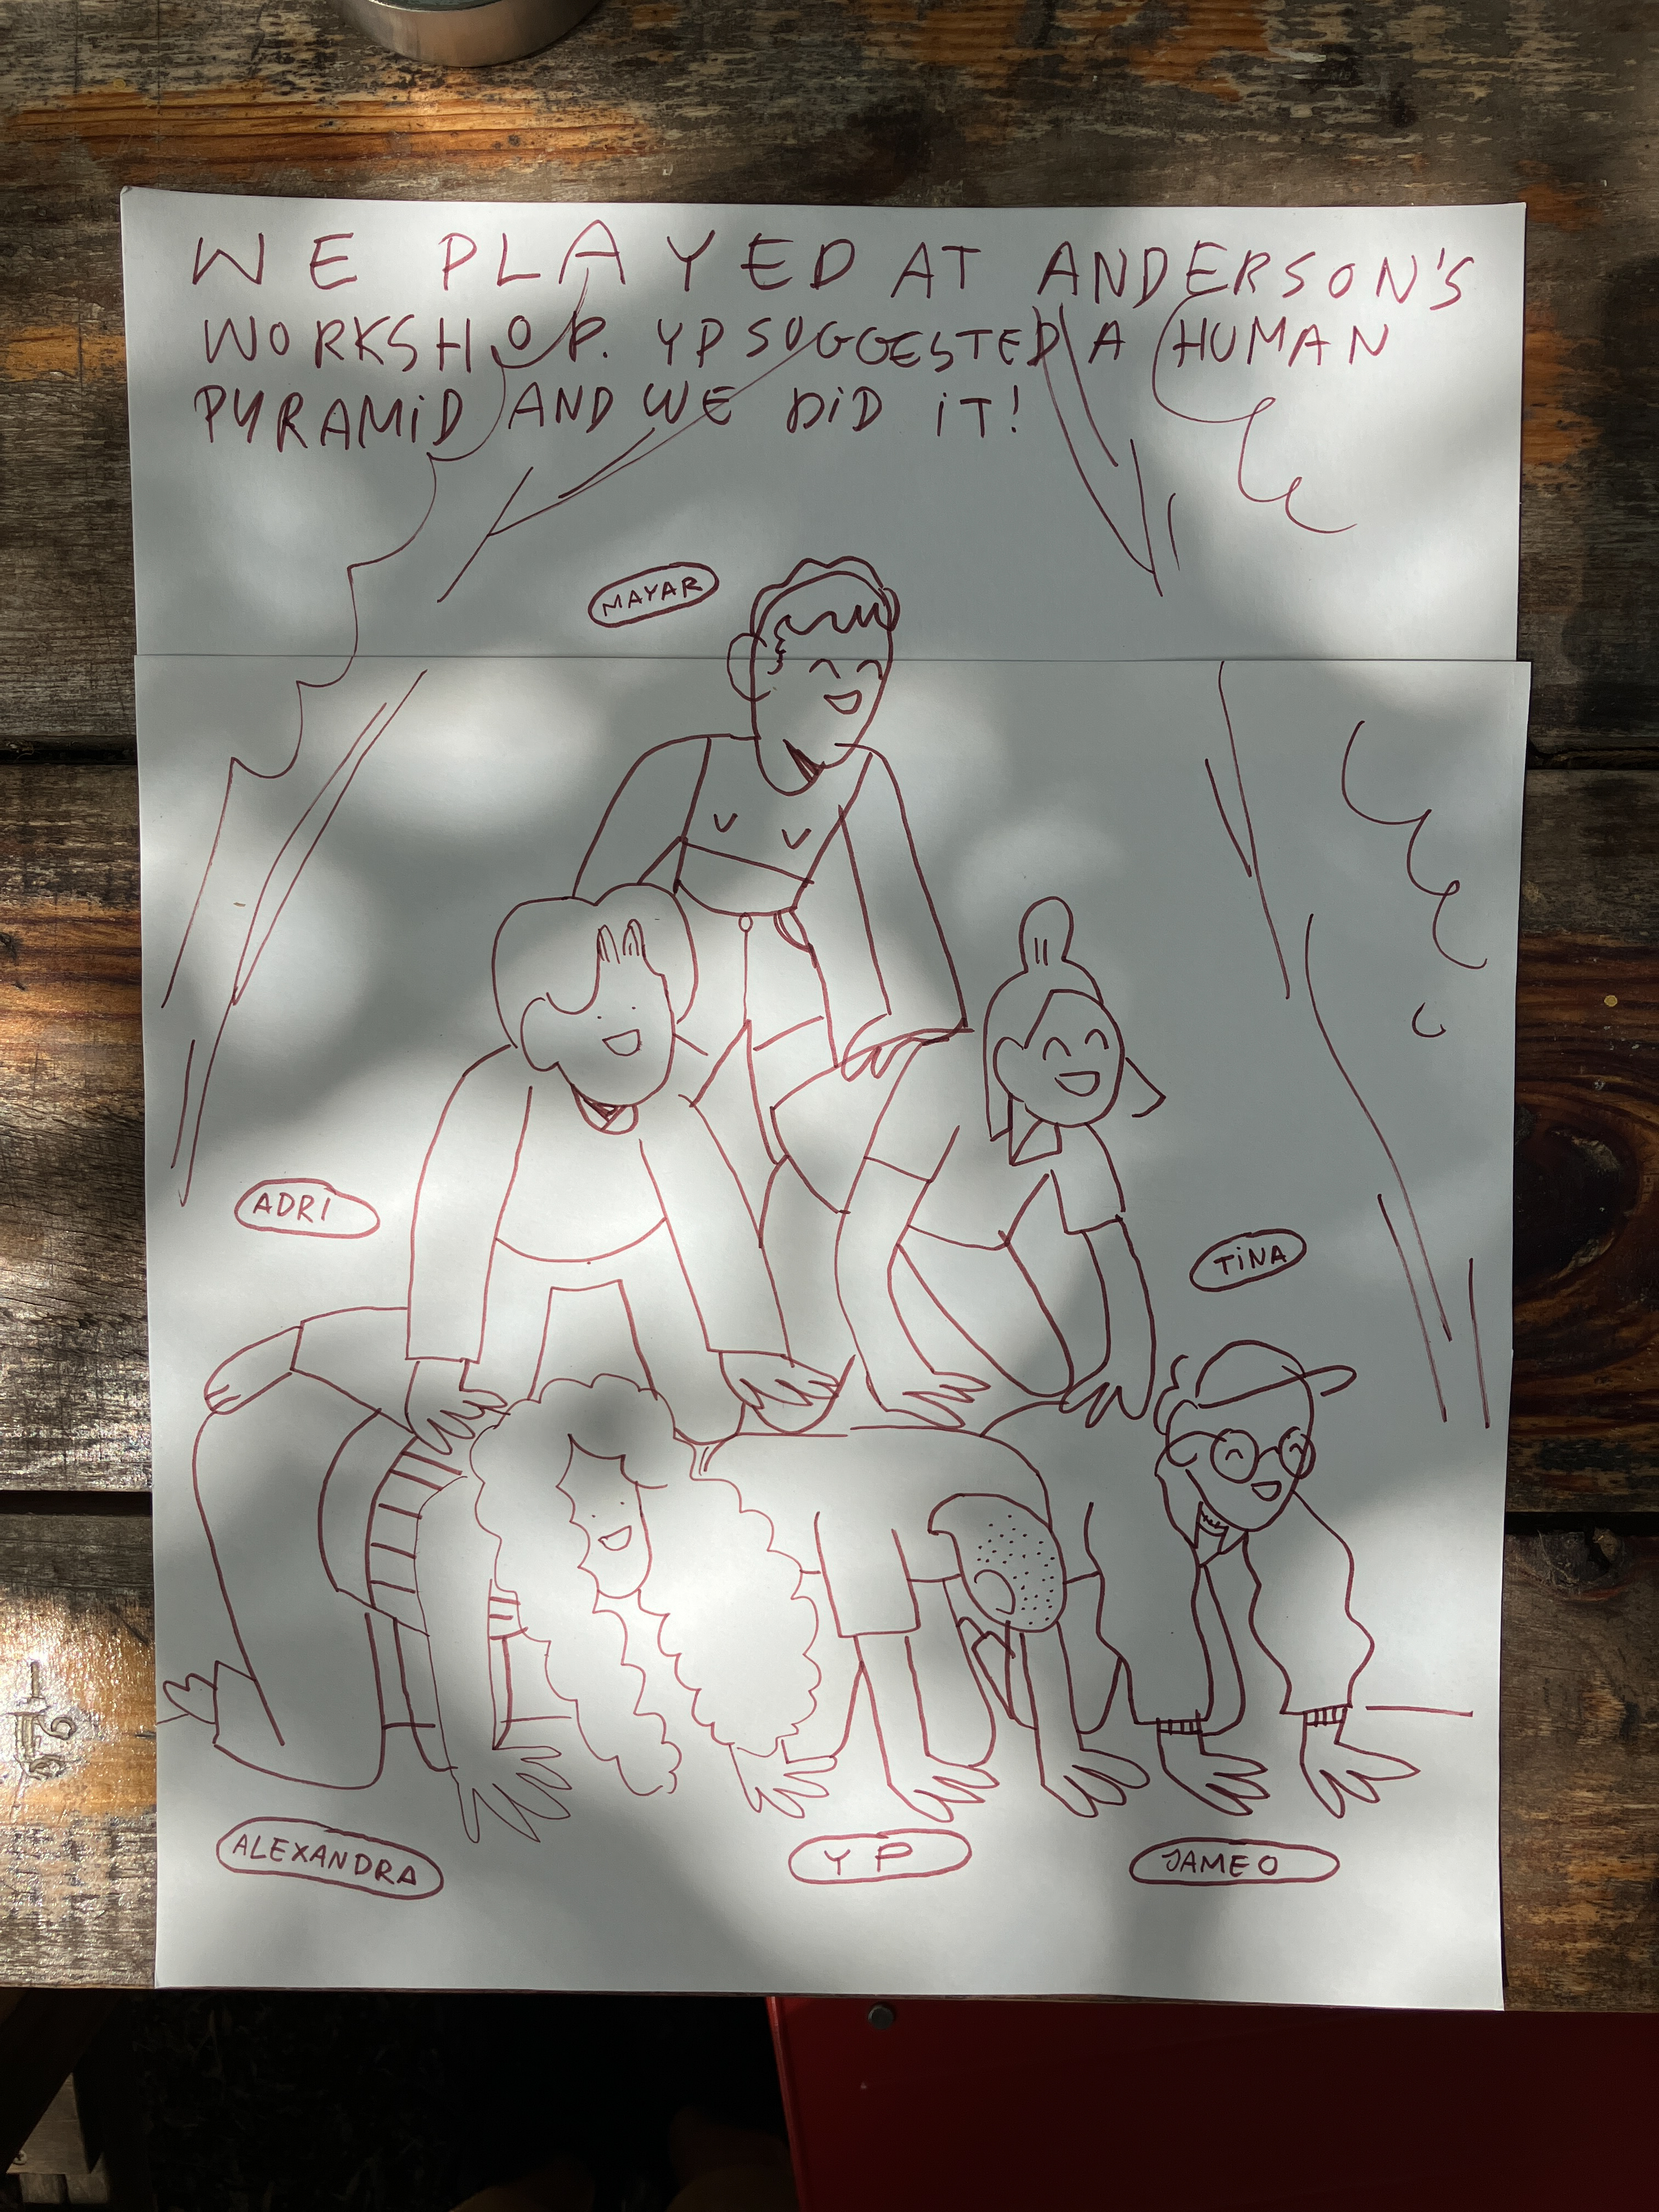 WE PLAYED AT ANDERSON'S
WORKSHOP. YP SUGGESTED A HUMAN
PYRAMiD AND WE DiD iT!
MAYAR
ADRI
TiNA
ALEXANDRA
YP
JAMEO